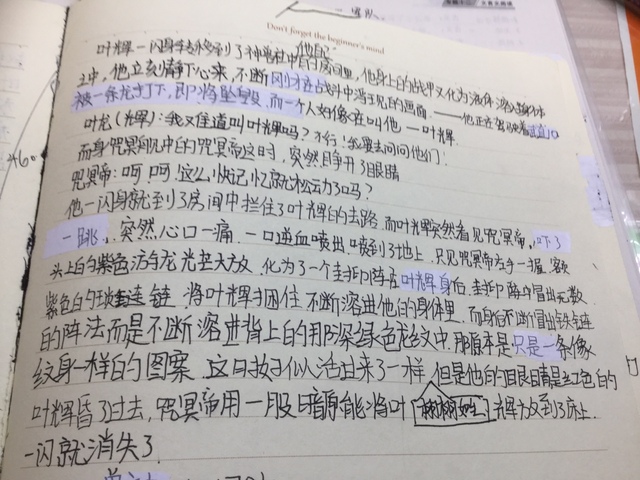 Don't forget the beginner's mind
叶辉一闪身转移到了神圣柱中自己的房间里,他身上的战甲又化为液体溶入身体
之中,他立刻静下心来,不断 刚才在战斗中浮现的画面.——他正在驾驶着
被一条龙打下,即将坠毁,而一个人好像在叫他一叶辉
叶龙(辉):我又住道叫叶辉吗?不行!我要去问问他们!
而身咒冥殿中的咒冥帝这时,突然睁开了眼睛
咒冥帝:呵!呵!这么快记忆就松动了吗?
他一闪身就到了房间中拦住了叶辉的去路.而叶辉突然看见咒冥帝,吓了
一跳,突然心口一痛.一口逆血喷出.喷到了地上.只见咒冥帝左手一握,额
头上的紫色 龙光芒大放,化为了一个封印阵在叶辉身后,封印阵中冒出无数
紫色的 链,将叶辉捆住,不断溶进他的身体里.而身后不断冒出铁链
的阵法而是不断溶进背上的那深绿色龙纹中,那原本是只是一条像
纹身一样的图案,这日 仿似人活过来了一样,但是他的眼睛是红色的
叶辉昏了过去,咒冥帝用一股暗能将叶 辉放到了床上.
一闪就消失了.